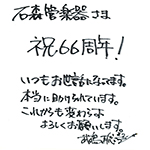 石森管楽器さま
祝66周年！
いつもお世話になってます。
本当に助けられています。
これからも変わらぬ
よろしくお願いします。